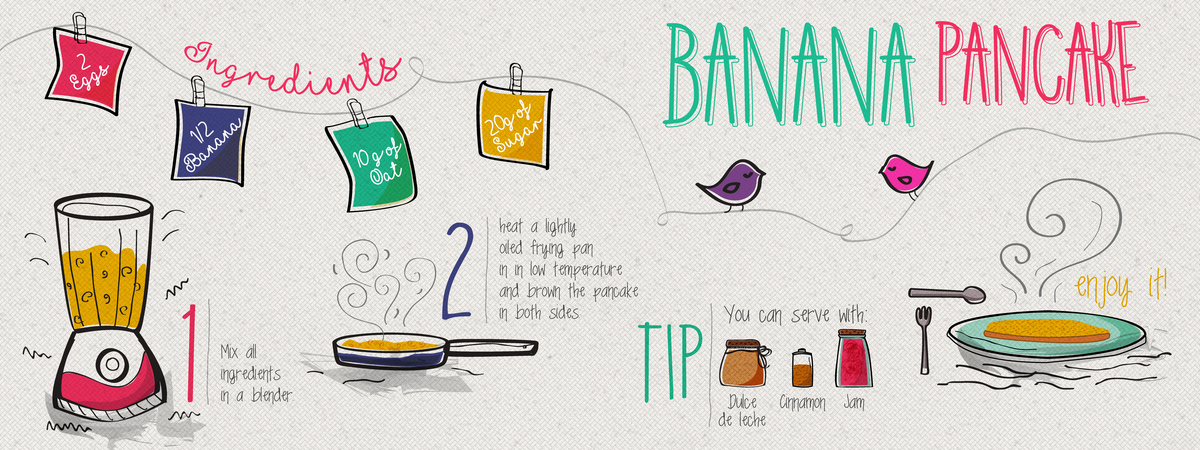 BANANA PANCAKE
Ingredients
2
Eggs
1/2
Banana
10 g of
Oat
20g of
Sugar
1
Mix all
ingredients
in a blender
2
heat a lightly
oiled frying pan
in in low temperature
and brown the pancake
in both sides
TIP
You can serve with:
Dulce
de leche
Cinnamon
Jam
enjoy it!